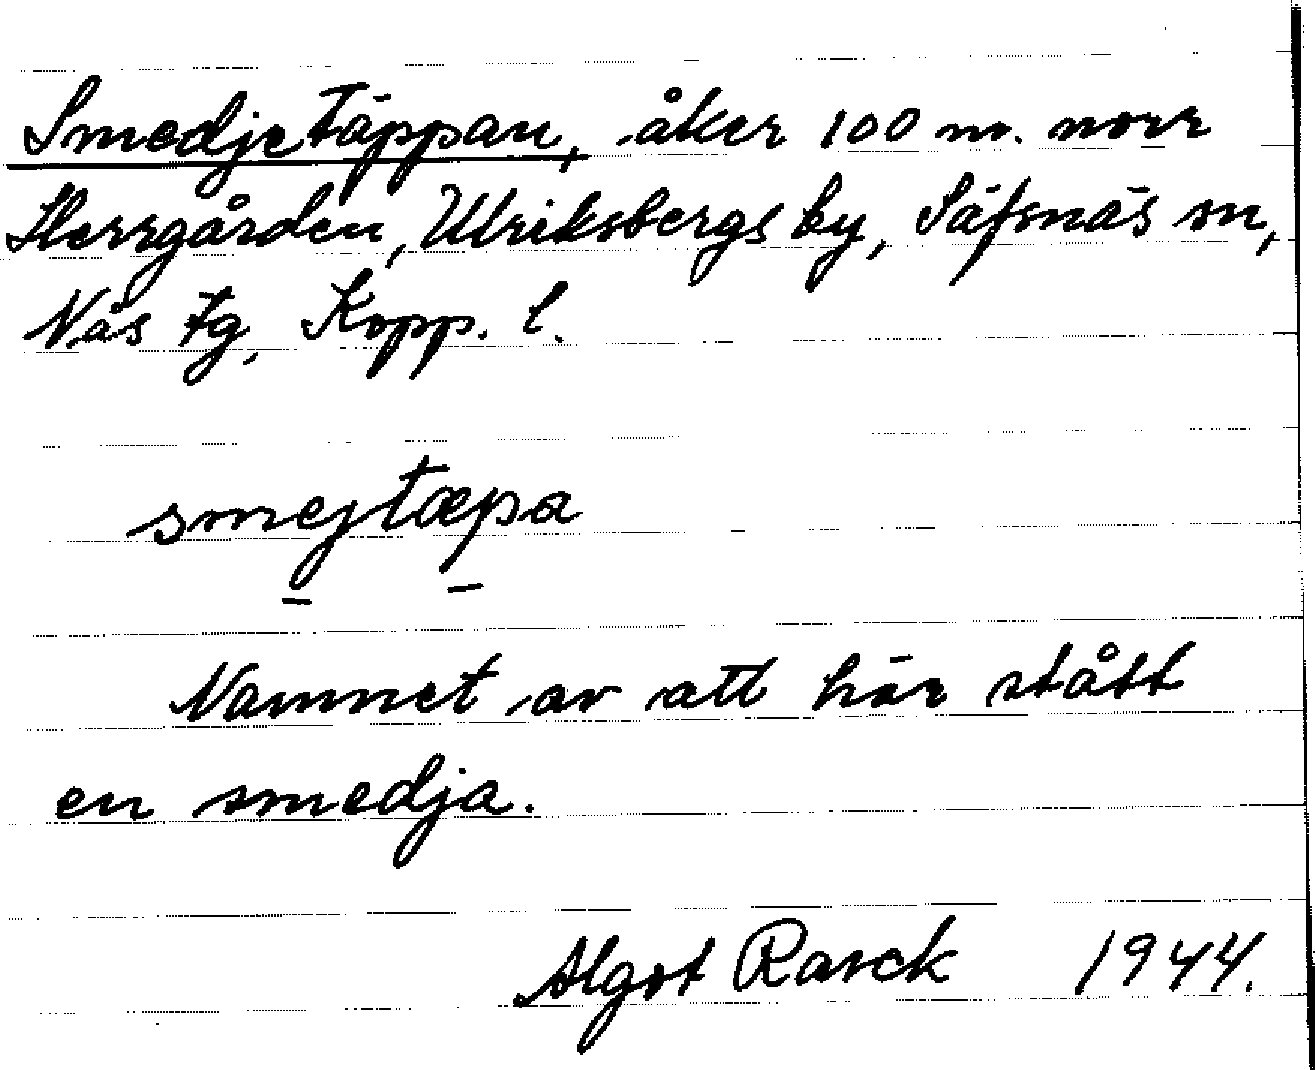 Smedjetäppan, åker 100 m. norr
Herrgården, Ulriksbergs by, Säfsnäs sn,
Nås tg, Kopp. l.
smejtæpa
Namnet av att här stått
en smedja.
Algot Rasck 1944.